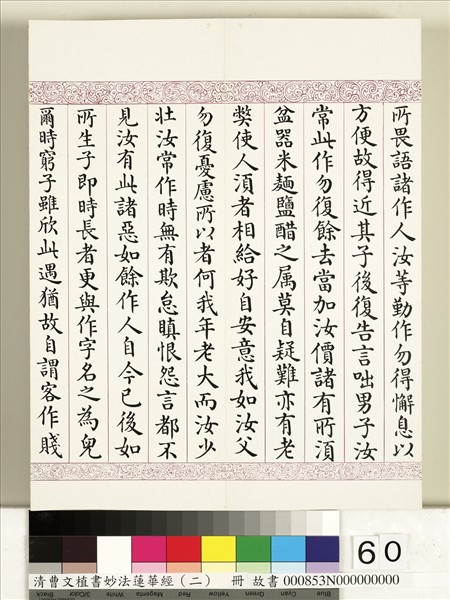 所畏語諸作人汝等勤作勿得懈息以
方便故得近其子後復告言咄男子汝
常此作勿復餘去當加汝價諸有所湏
盆器米麵鹽醋之属莫自疑難亦有老
弊使人湏者相給好自安意我如汝父
勿復憂慮所以者何我年老大而汝少
壮汝常作時無有欺怠瞋恨怨言都不
見汝有此諸惡如餘作人自今已後如
所生子即時長者更與作字名之為兒
爾時窮子雖欣此遇猶故自謂客作賤
60
清曹文植書妙法蓮華經（二） 冊 故書 000853N000000000
Black 3/Color White Magenta Red Yellow Green Cyan Blue